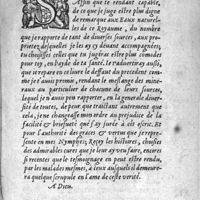 Afin que te rendant capable,
de ce que je juge estre plus digne
de remarque aux EAUX naturel-
les de ce Royaume, du nombre
que je rapporte de tant de diverses sources, aux pro-
prietez desquelles je les ay cy devant accompagnées,
tu choisisses celles que tu jugeras estre plus
pour toy, ou
que en ce livre le deffaut du precedent com-
me j'ay à mon premier, rendant le meslange des mine-
raux au particulier de chacune de leurs sources,
lequel je n'avois peu rapporter, en la general de diver-
sité de toutes, de peur que traictant autrement que
cela, je ne changeasse mon ordre au prejudice de la
facilité & briefveté que j'ay jurée à cét escrit. Et
pour l'authorité des graces & vertus que je repre-
sente en mes Nymphes; Reçoy les histoires, choisies
des admirables cures que je leur ay veu faire, encore
si recentes que le tesmoignage en peut estre rendu,
par les malades mesmes, à ceux ausquels il demeure-
ra quelque scrupule en l'ame de ceste verité.
A Dieu.